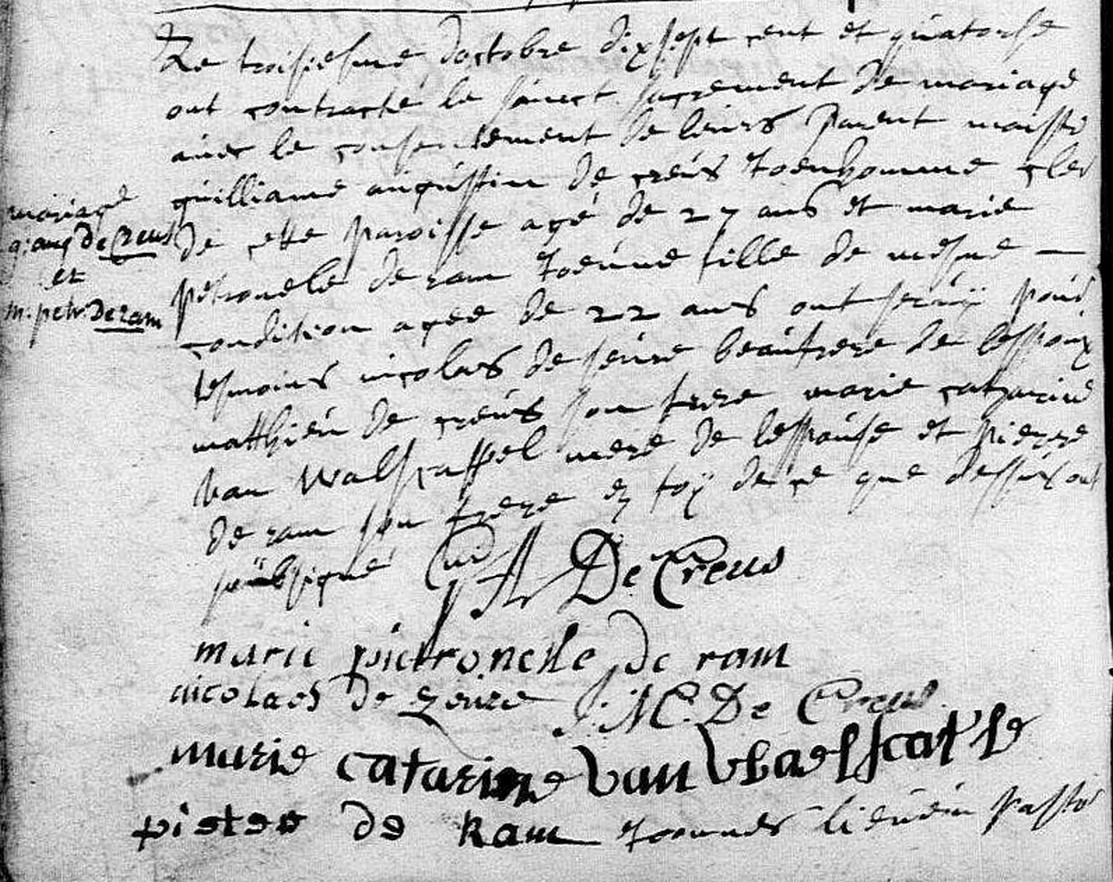 Le troisiesme doctobre dixsept cent et quatorse
ont contracté le sainct sacrement de mariage
avec le consentement de leurs parent maistre
guilliame augustin de creus Joenhomme clerc
mariage
g: aug de Creus
et
m. petr. de ram
de cette paroisse agé de 27 ans et marie
petronelle de ram Joeune fille de mesme —
condition agee de 22 ans ont servÿ pour
tesmoins nicolas de seure beaufrere de lespoux
matthieu de creus son frere marie catharine
van Walscappel mere de lespouse et pierre
de ram son frere en foÿ de ce que dessus ont
soubsigné
De Creus
marie pietronelle de ram
nicolaes de zeure J: M: C. De Creus
marie catarine van Vbaelscap le
pieter de Ram Joannes lieuein pastor